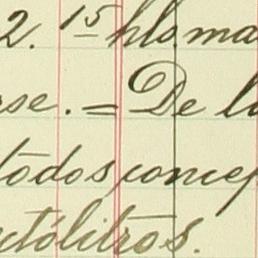 2. 15 hlo. ma
rse. = De la
todos concep
ctólitros.